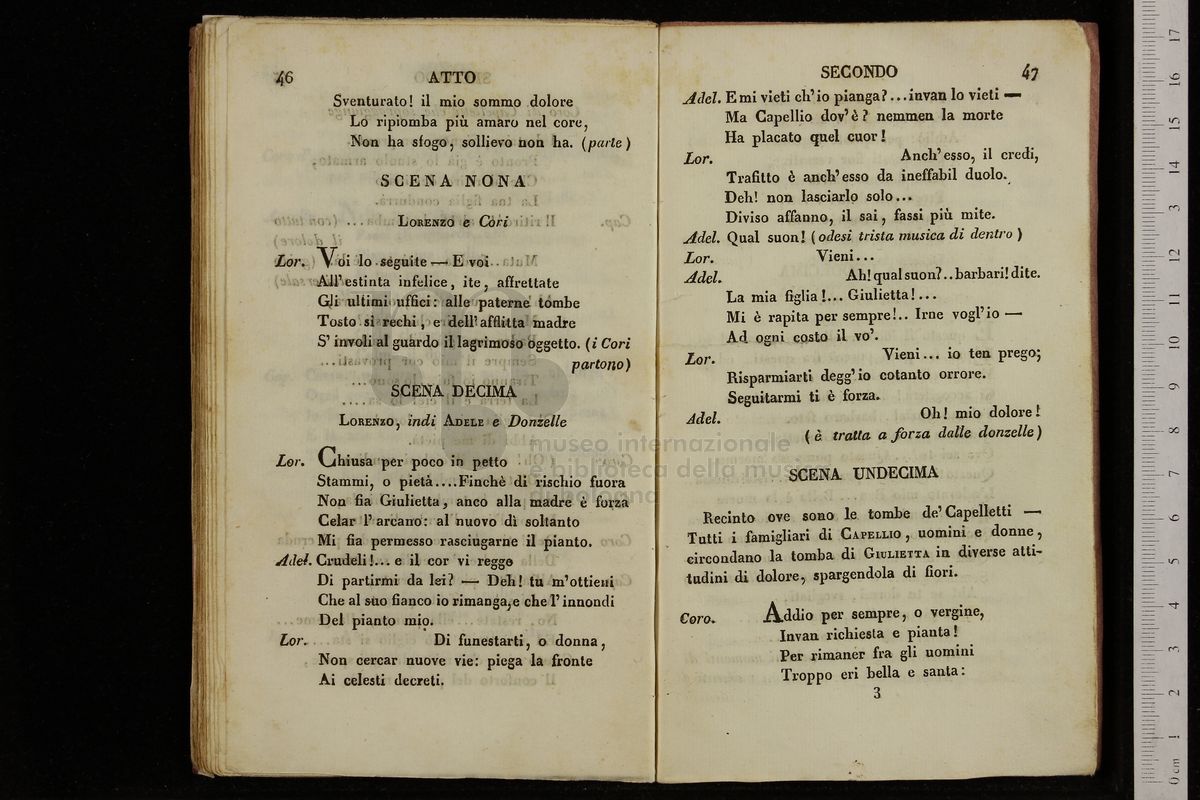 46 ATTO
Sventurato! il mio sommo dolore
Lo ripiomba più amaro nel core,
Non ha sfogo, sollievo non ha. (parte)
SCENA NONA
LORENZO e Cori
Lor. Voi lo seguite — E voi
All'estinta infelice, ite, affrettate
Gli ultimi uffici: alle paterne tombe
Tosto si rechi, e dell'afflitta madre
S'involi al guardo il lagrimoso oggetto. (i Cori
partono)
SCENA DECIMA
LORENZO, indi ADELE e Donzelle
Lor. Chiusa per poco in petto
Stammi, o pietà....Finchè di rischio fuora
Non fia Giulietta, anco alla madre è forza
Celar l'arcano: al nuovo dì soltanto
Mi fia permesso rasciugarne il pianto.
Adel. Crudeli!... e il cor vi regge
Di partirmi da lei? — Deh! tu m'ottieni
Che al suo fianco io rimanga, e che l'innondi
Del pianto mio.
Lor. Di funestarti, o donna,
Non cercar nuove vie: piega la fronte
Ai celesti decreti.
SECONDO 47
Adel. E mi vieti ch'io pianga?...invan lo vieti —
Ma Capellio dov'è? nemmen la morte
Ha placato quel cuor!
Lor. Anch'esso, il credi,
Trafitto è anch'esso da ineffabil duolo.
Deh! non lasciarlo solo...
Diviso affanno, il sai, fassi più mite.
Adel. Qual suon! (odesi trista musica di dentro)
Lor. Vieni...
Adel. Ah! qual suon?..barbari! dite.
La mia figlia!... Giulietta!...
Mi è rapita per sempre!.. Irne vogl'io —
Ad ogni costo il vo'.
Lor. Vieni... io ten prego;
Risparmiarti degg'io cotanto orrore.
Seguitarmi ti è forza.
Adel. Oh! mio dolore!
(è tratta a forza dalle donzelle)
SCENA UNDECIMA
Recinto ove sono le tombe de' Capelletti —
Tutti i famigliari di CAPELLIO, uomini e donne,
circondano la tomba di GIULIETTA in diverse atti-
tudini di dolore, spargendola di fiori.
Coro. Addio per sempre, o vergine,
Invan richiesta e pianta!
Per rimaner fra gli uomini
Troppo eri bella e santa:
3
museo internazionale
e biblioteca della musica
di bologna
0cm 1 2 3 4 5 6 7 8 9 10 11 12 13 14 15 16 17